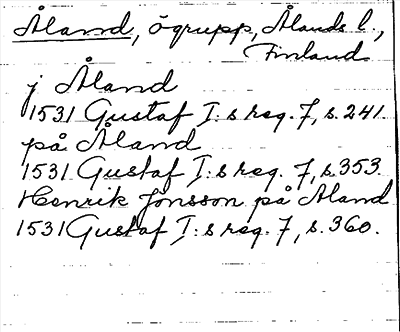 Åland, ögrupp, Ålands l.,
Finland
j Åland
1531 Gustaf I:s reg. 7, s. 241.
på Åland
1531 Gustaf I:s reg. 7, s. 353.
Henrik Jönsson på Åland
1531 Gustaf I:s reg. 7, s. 360.